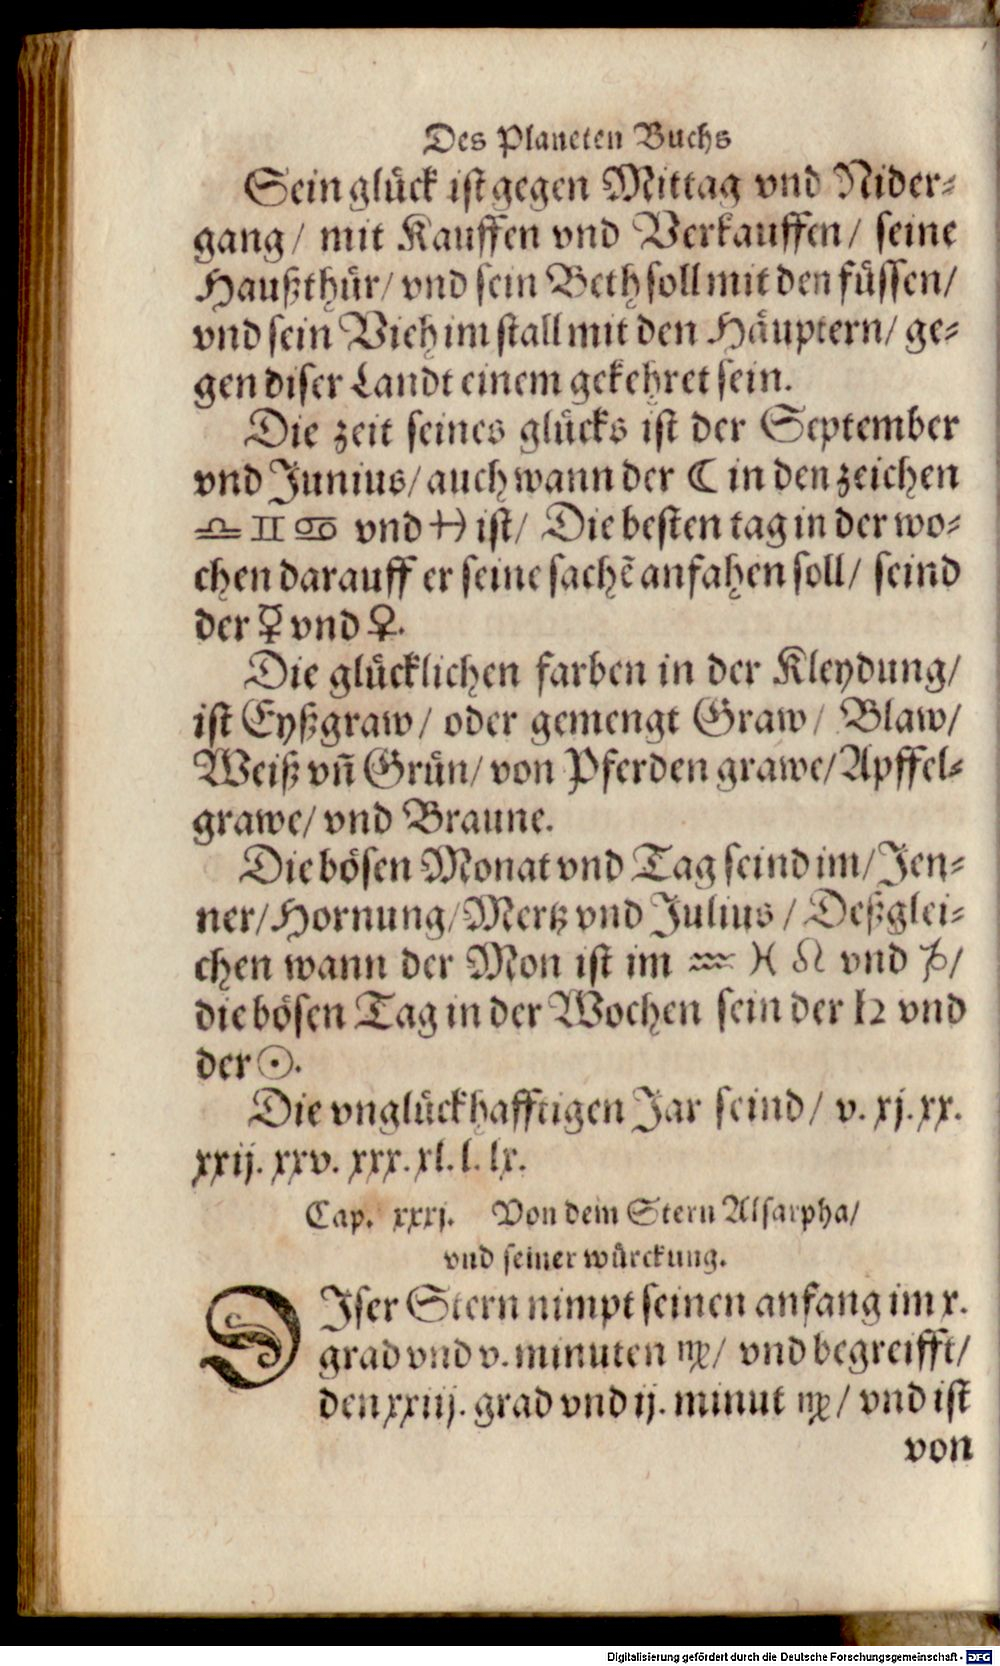 Des Planeten Buchs
Sein glück ist gegen Mittag vnd Nider-
gang/ mit Kauffen vnd Verkauffen/ seine
Haußthür/ vnd sein Beth soll mit den füssen/
vnd sein Vieh im stall mit den Häuptern/ ge-
gen diser Landt einem gekehret sein.
Die zeit seines glücks ist der September
vnd Junius/ auch wann der ☾ in den zeichen
♎ ♊ ♋ vnd ♓ ist/ Die besten tag in der wo-
chen darauff er seine sachẽ anfahen soll/ seind
der ☿ vnd ♀.
Die glücklichen farben in der Kleydung/
ist Eyßgraw/ oder gemengt Graw/ Blaw/
Weiß vñ Grün/ von Pferden grawe/ Apffel-
grawe/ vnd Braune.
Die bösen Monat vnd Tag seind im/ Jen-
ner/ Hornung/ Mertz vnd Julius/ Deßglei-
chen wann der Mon ist im ♒ ♓ ♌ vnd ♑/
die bösen Tag in der Wochen sein der ♄ vnd
der ☉.
Die vnglückhafftigen Jar seind/ v. xj. xx.
xxij. xxv. xxx. xl. l. lx.
Cap. xxxj. Von dem Stern Alsarpha/
vnd seiner würckung.
DJser Stern nimpt seinen anfang im x.
grad vnd v. minuten ♍/ vnd begreifft/
den xxiij. grad vnd ij. minut ♍/ vnd ist
von
Digitalisierung gefördert durch die Deutsche Forschungsgemeinschaft - DFG